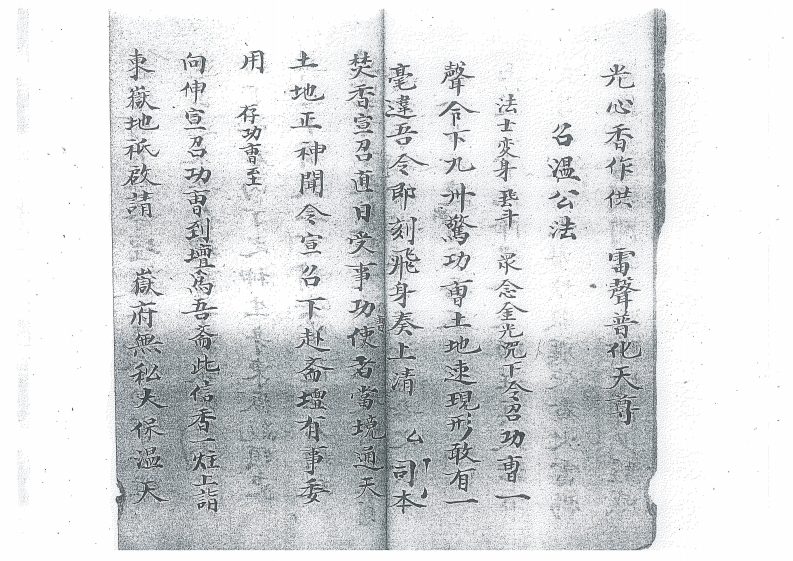 光心香作供　雷聲普化天尊
召溫公法
法士変身　罡斗　眾念金光咒下令召功曹一
聲令下九州驚功曹土地速現形敢有一
毫違吾令即刻飛身奏上清　厶司本
焚香宣召直日受事功曹使者當境通天
土地正神聞令宣召下赴齋壇有事委
用　存功曹至
向伸宣召功曹到壇為吾齋此信香一炷上詣
東嶽地祇啟請　嶽府無私大保溫天